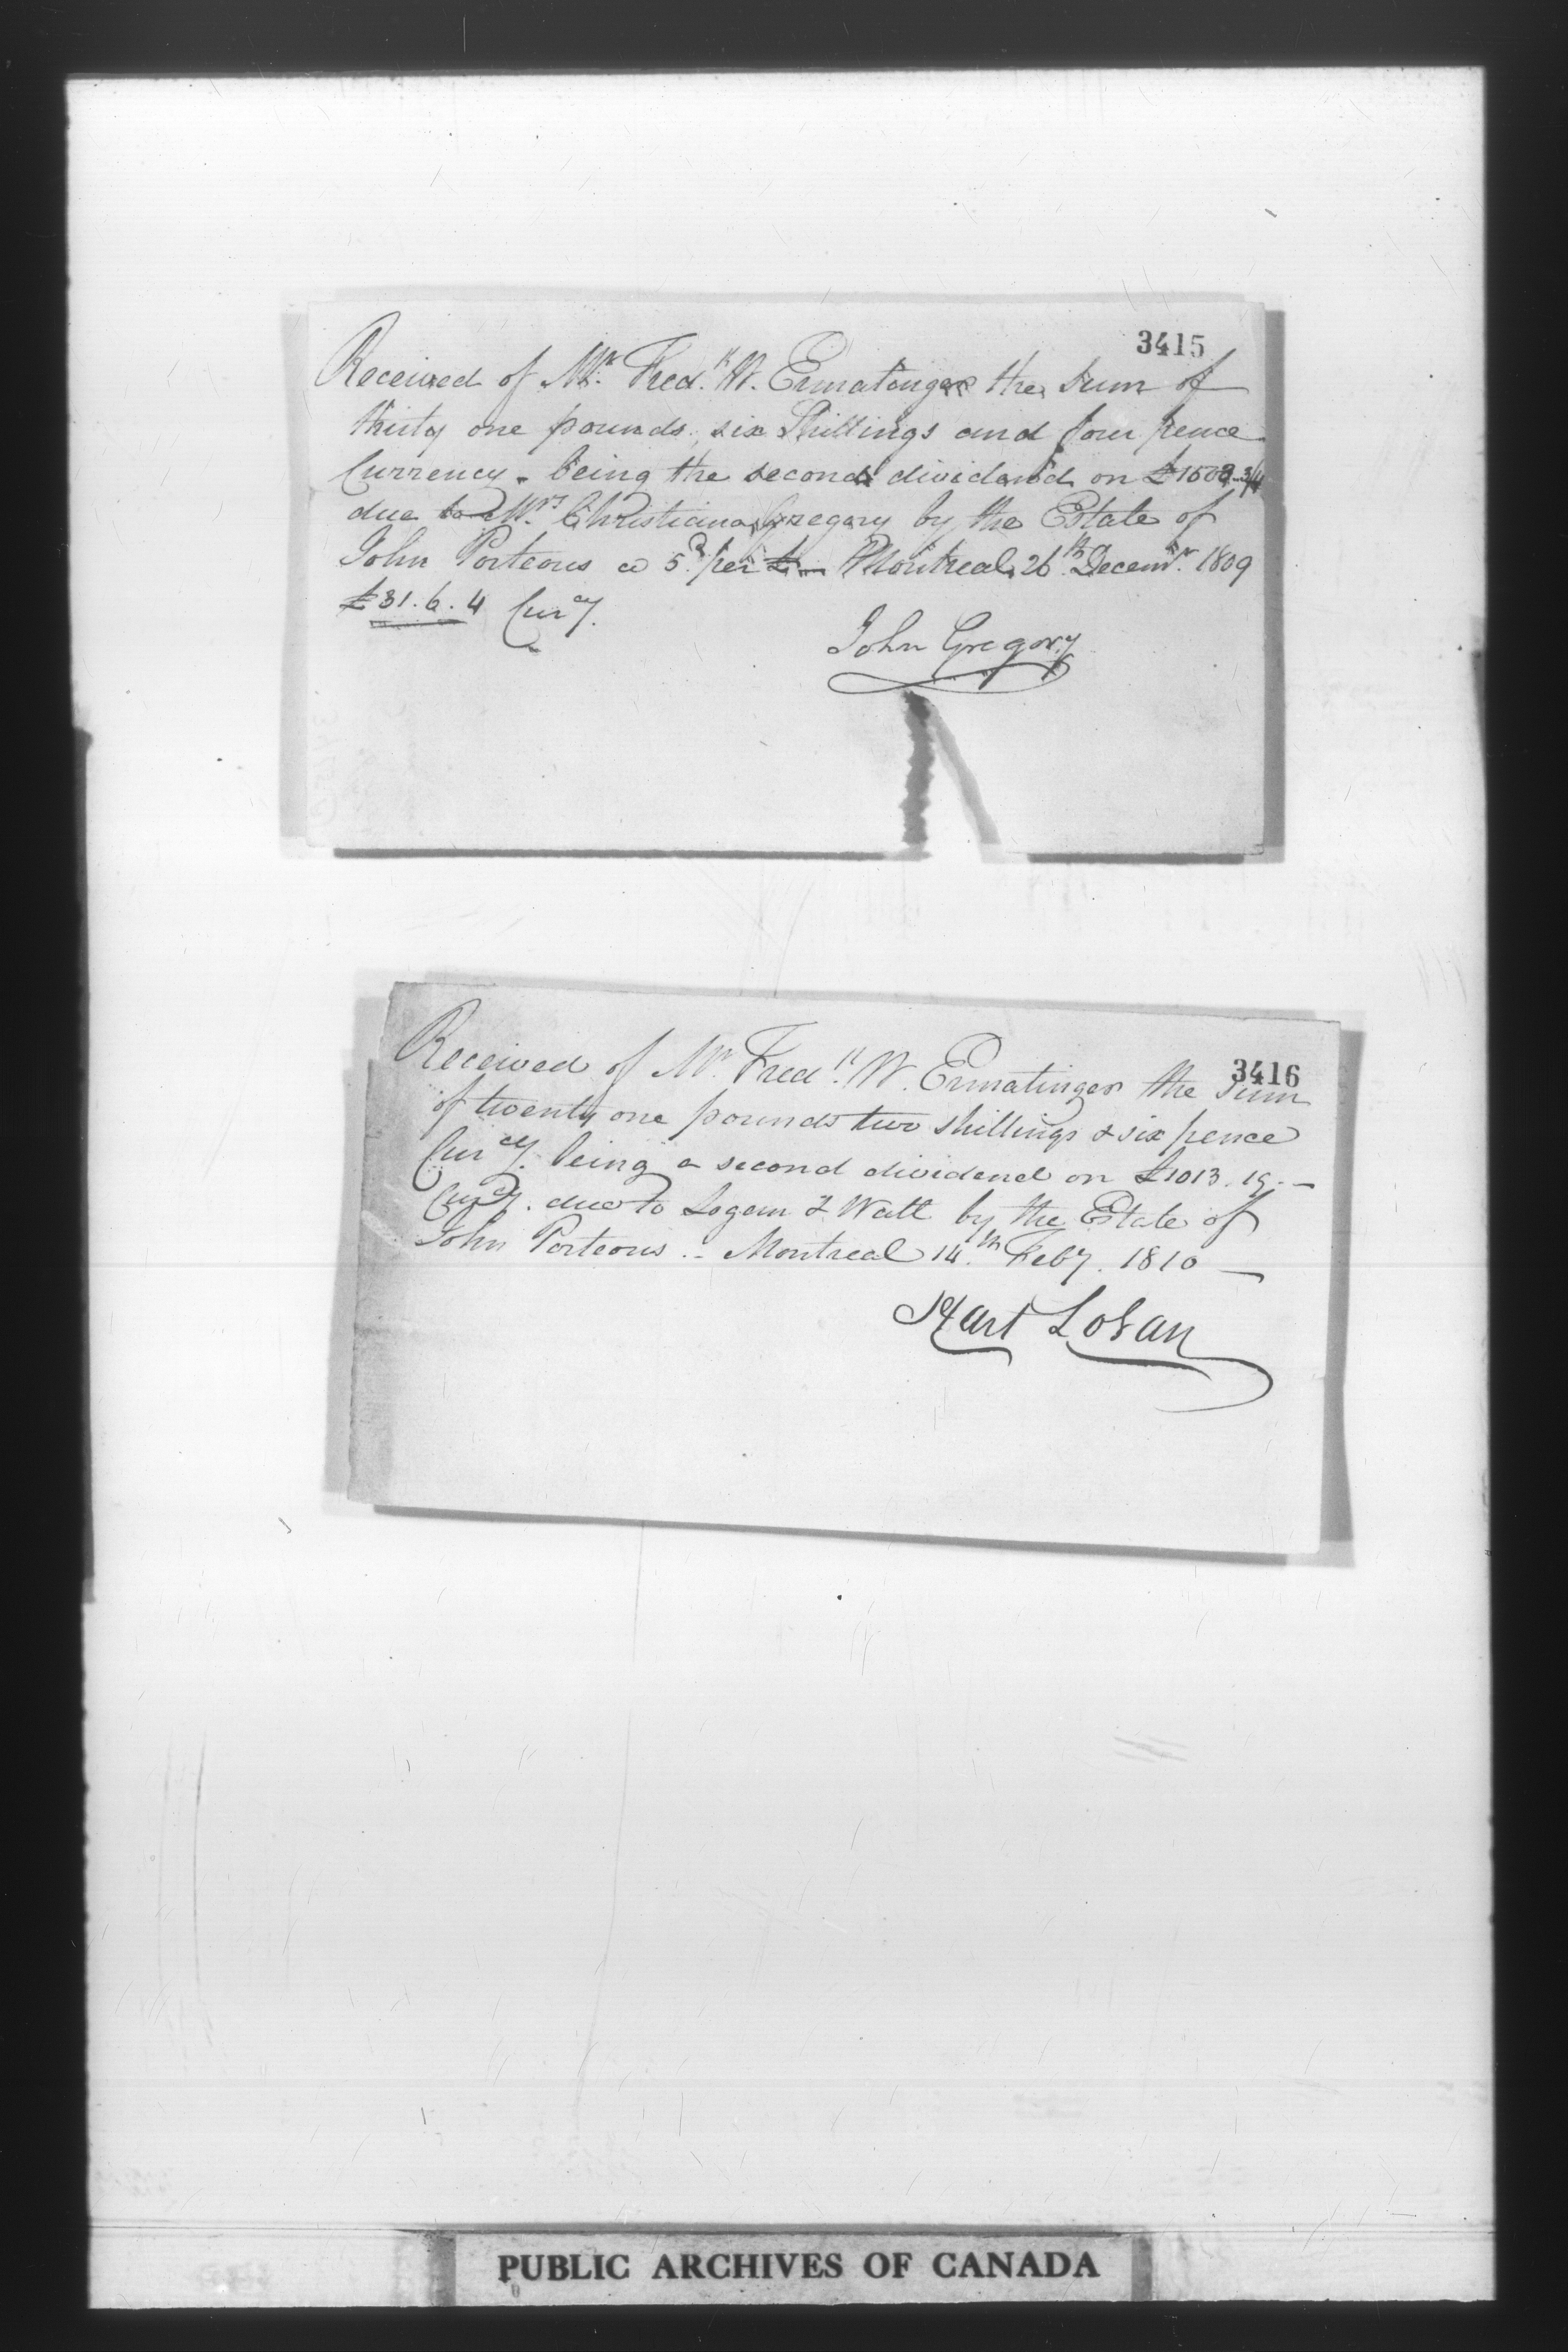 3415
Received of Mr. Fred.k W. Ermatinger the Sum of
thirty one pounds, six Shillings and four pence
Currency - being the second dividend on
due to Mrs Christiana Gregory by the Estate of
John Porteous @ 5d. per £ Montreal 26th Decemr. 1809
£31.6.4 Curcy.
John Gregory
3416
Received of Mr. Fred.k W. Ermatinger the Sum
of twenty one pounds two shillings & six pence
Curcy. being a second dividend on £1013.19.-
Curcy. due to Logan & Watt by the Estate of
John Porteous .- Montreal 14.th Feby. 1810 -
Hart Logan
PUBLIC ARCHIVES OF CANADA